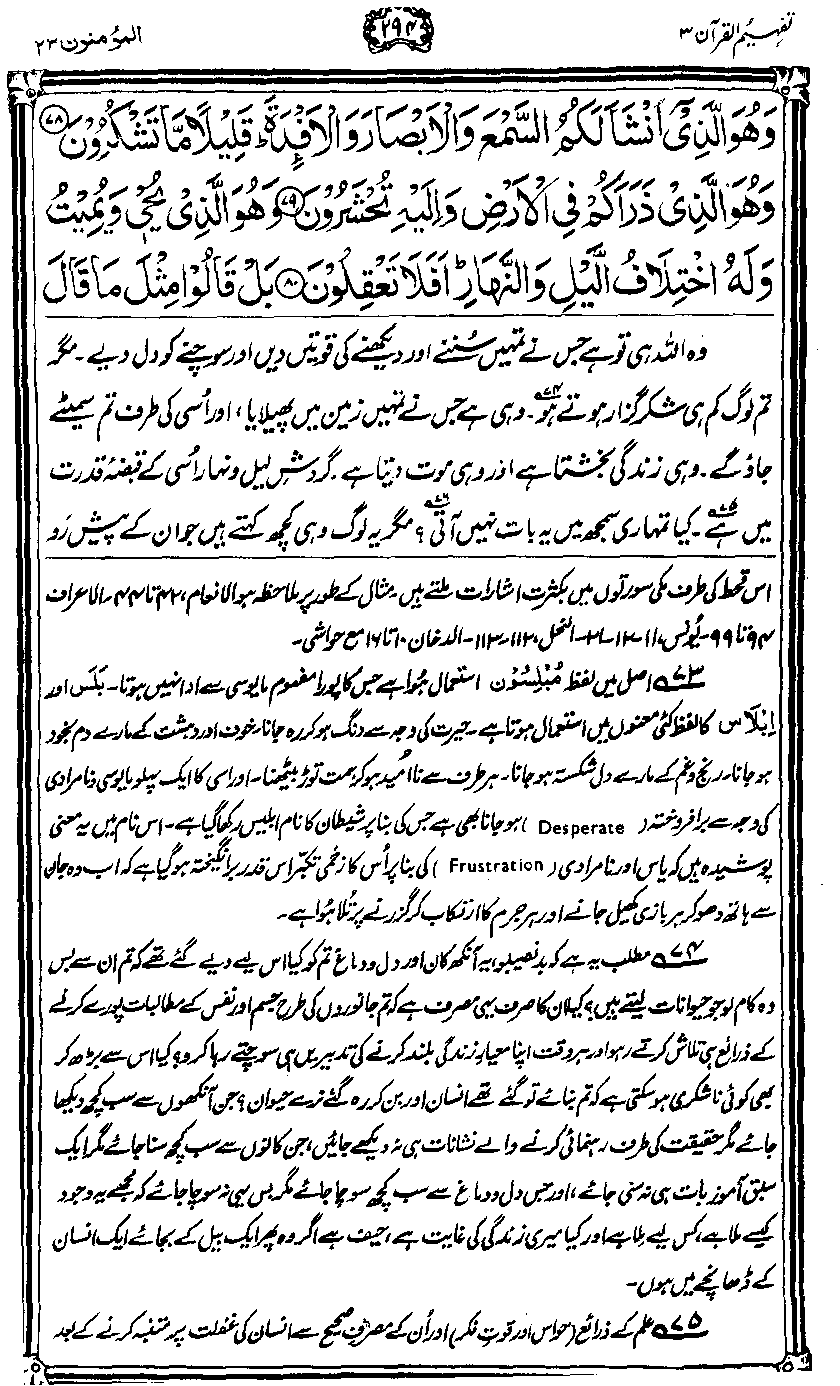 تفہیم القرآن ۳
۲۹۴
المؤمنون ۲۳
وَهُوَ الَّذِیْٓ اَنْشَاَ لَكُمُ السَّمْعَ وَالْاَبْصَارَ وَالْاَفْـِٕدَةَ ؕ قَلِیْلًا مَّا تَشْكُرُوْنَ ﴿۷۸﴾
وَهُوَ الَّذِیْ ذَرَاَكُمْ فِی الْاَرْضِ وَاِلَیْهِ تُحْشَرُوْنَ ﴿۷۹﴾ وَهُوَ الَّذِیْ یُحْیٖ وَیُمِیْتُ
وَلَهُ اخْتِلَافُ الَّیْلِ وَالنَّهَارِ ؕ اَفَلَا تَعْقِلُوْنَ ﴿۸۰﴾ بَلْ قَالُوْا مِثْلَ مَا قَالَ
وہ اللہ ہی تو ہے جس نے تمہیں سُننے اور دیکھنے کی قوتیں دیں اور سوچنے کو دل دیے۔ مگر
تم لوگ کم ہی شکر گزار ہوتے ہو۷۴۔ وہی ہے جس نے تمہیں زمین میں پھیلایا، اور اُسی کی طرف تم سمیٹے
جاؤ گے۔ وہی زندگی بخشتا ہے اور وہی موت دیتا ہے۔ گردشِ لیل و نہار اُسی کے قبضۂ قدرت
میں ہے۷۵۔ کیا تمہاری سمجھ میں یہ بات نہیں آتی۷۶؟ مگر یہ لوگ وہی کچھ کہتے ہیں جو ان کے پیش رَو
اس قحط کی طرف مکی سورتوں میں بکثرت اشارات ملتے ہیں۔ مثال کے طور پر ملاحظہ ہو الانعام، ۴۲ تا ۴۴۔ الاعراف
۹۴ تا ۹۹۔ یونس، ۱۱۔ ۱۲۔ ۲۱۔ النحل، ۱۱۲۔ ۱۱۳۔ الدخان ۱۰ تا ۱۶ مع حواشی۔
۷۳ اصل میں لفظ مُبْلِسُوْن استعمال ہُوا ہے جس کا پورا مفہوم مایوسی سے ادا نہیں ہوتا۔ بَلَس اور
اِبْلَاس کا لفظ کئی معنوں میں استعمال ہوتا ہے۔ حیرت کی وجہ سے دنگ ہو کر رہ جانا، خوف اور دہشت کے مارے دم بخود
ہو جانا۔ رنج و غم کے مارے دل شکستہ ہو جانا۔ ہر طرف سے نا اُمید ہو کر ہمت توڑ بیٹھنا۔ اور اسی کا ایک پہلو مایوسی و نامرادی
کی وجہ سے برافروختہ (Desperate) ہو جانا بھی ہے جس کی بنا پر شیطان کا نام ابلیس رکھا گیا ہے۔ اس نام میں یہ معنی
پوشیدہ ہیں کہ یاس اور نامرادی (Frustration) کی بنا پر اُس کا زخمی تکبّر اس قدر برانگیختہ ہو گیا ہے کہ اب وہ جان
سے ہاتھ دھو کر ہر بازی کھیل جانے اور ہر جرم کا ارتکاب کر گزرنے پر تُلا ہُوا ہے۔
۷۴ مطلب یہ ہے کہ بدنصیبو، یہ آنکھ کان اور دل و دماغ تم کو کیا اس لیے دیے گئے تھے کہ تم ان سے بس
وہ کام لو جو حیوانات لیتے ہیں؟ کیا ان کا صرف یہی مصرف ہے کہ تم جانوروں کی طرح جسم اور نفس کے مطالبات پورے کرنے
کے ذرائع ہی تلاش کرتے رہو اور ہر وقت اپنا معیارِ زندگی بلند کرنے کی تدبیریں ہی سوچتے رہا کرو؟ کیا اس سے بڑھ کر
بھی کوئی ناشکری ہو سکتی ہے کہ تم بنائے تو گئے تھے انسان اور بن کر رہ گئے نرے حیوان؟ جن آنکھوں سے سب کچھ دیکھا
جائے مگر حقیقت کی طرف رہنمائی کرنے والے نشانات ہی نہ دیکھے جائیں، جن کانوں سے سب کچھ سنا جائے مگر ایک
سبق آموز بات ہی نہ سنی جائے، اور جس دل و دماغ سے سب کچھ سوچا جائے مگر بس یہی نہ سوچا جائے کہ مجھے یہ وجود
کیسے ملا ہے، کس لیے ملا ہے اور کیا میری زندگی کی غایت ہے، حیف ہے اگر وہ پھر ایک بیل کے بجائے ایک انسان
کے ڈھانچے میں ہوں۔
۷۵ علم کے ذرائع (حواس اور قوتِ فکر) اور اُن کے مصرفِ صحیح سے انسان کی غفلت پر متنبہ کرنے کے بعد